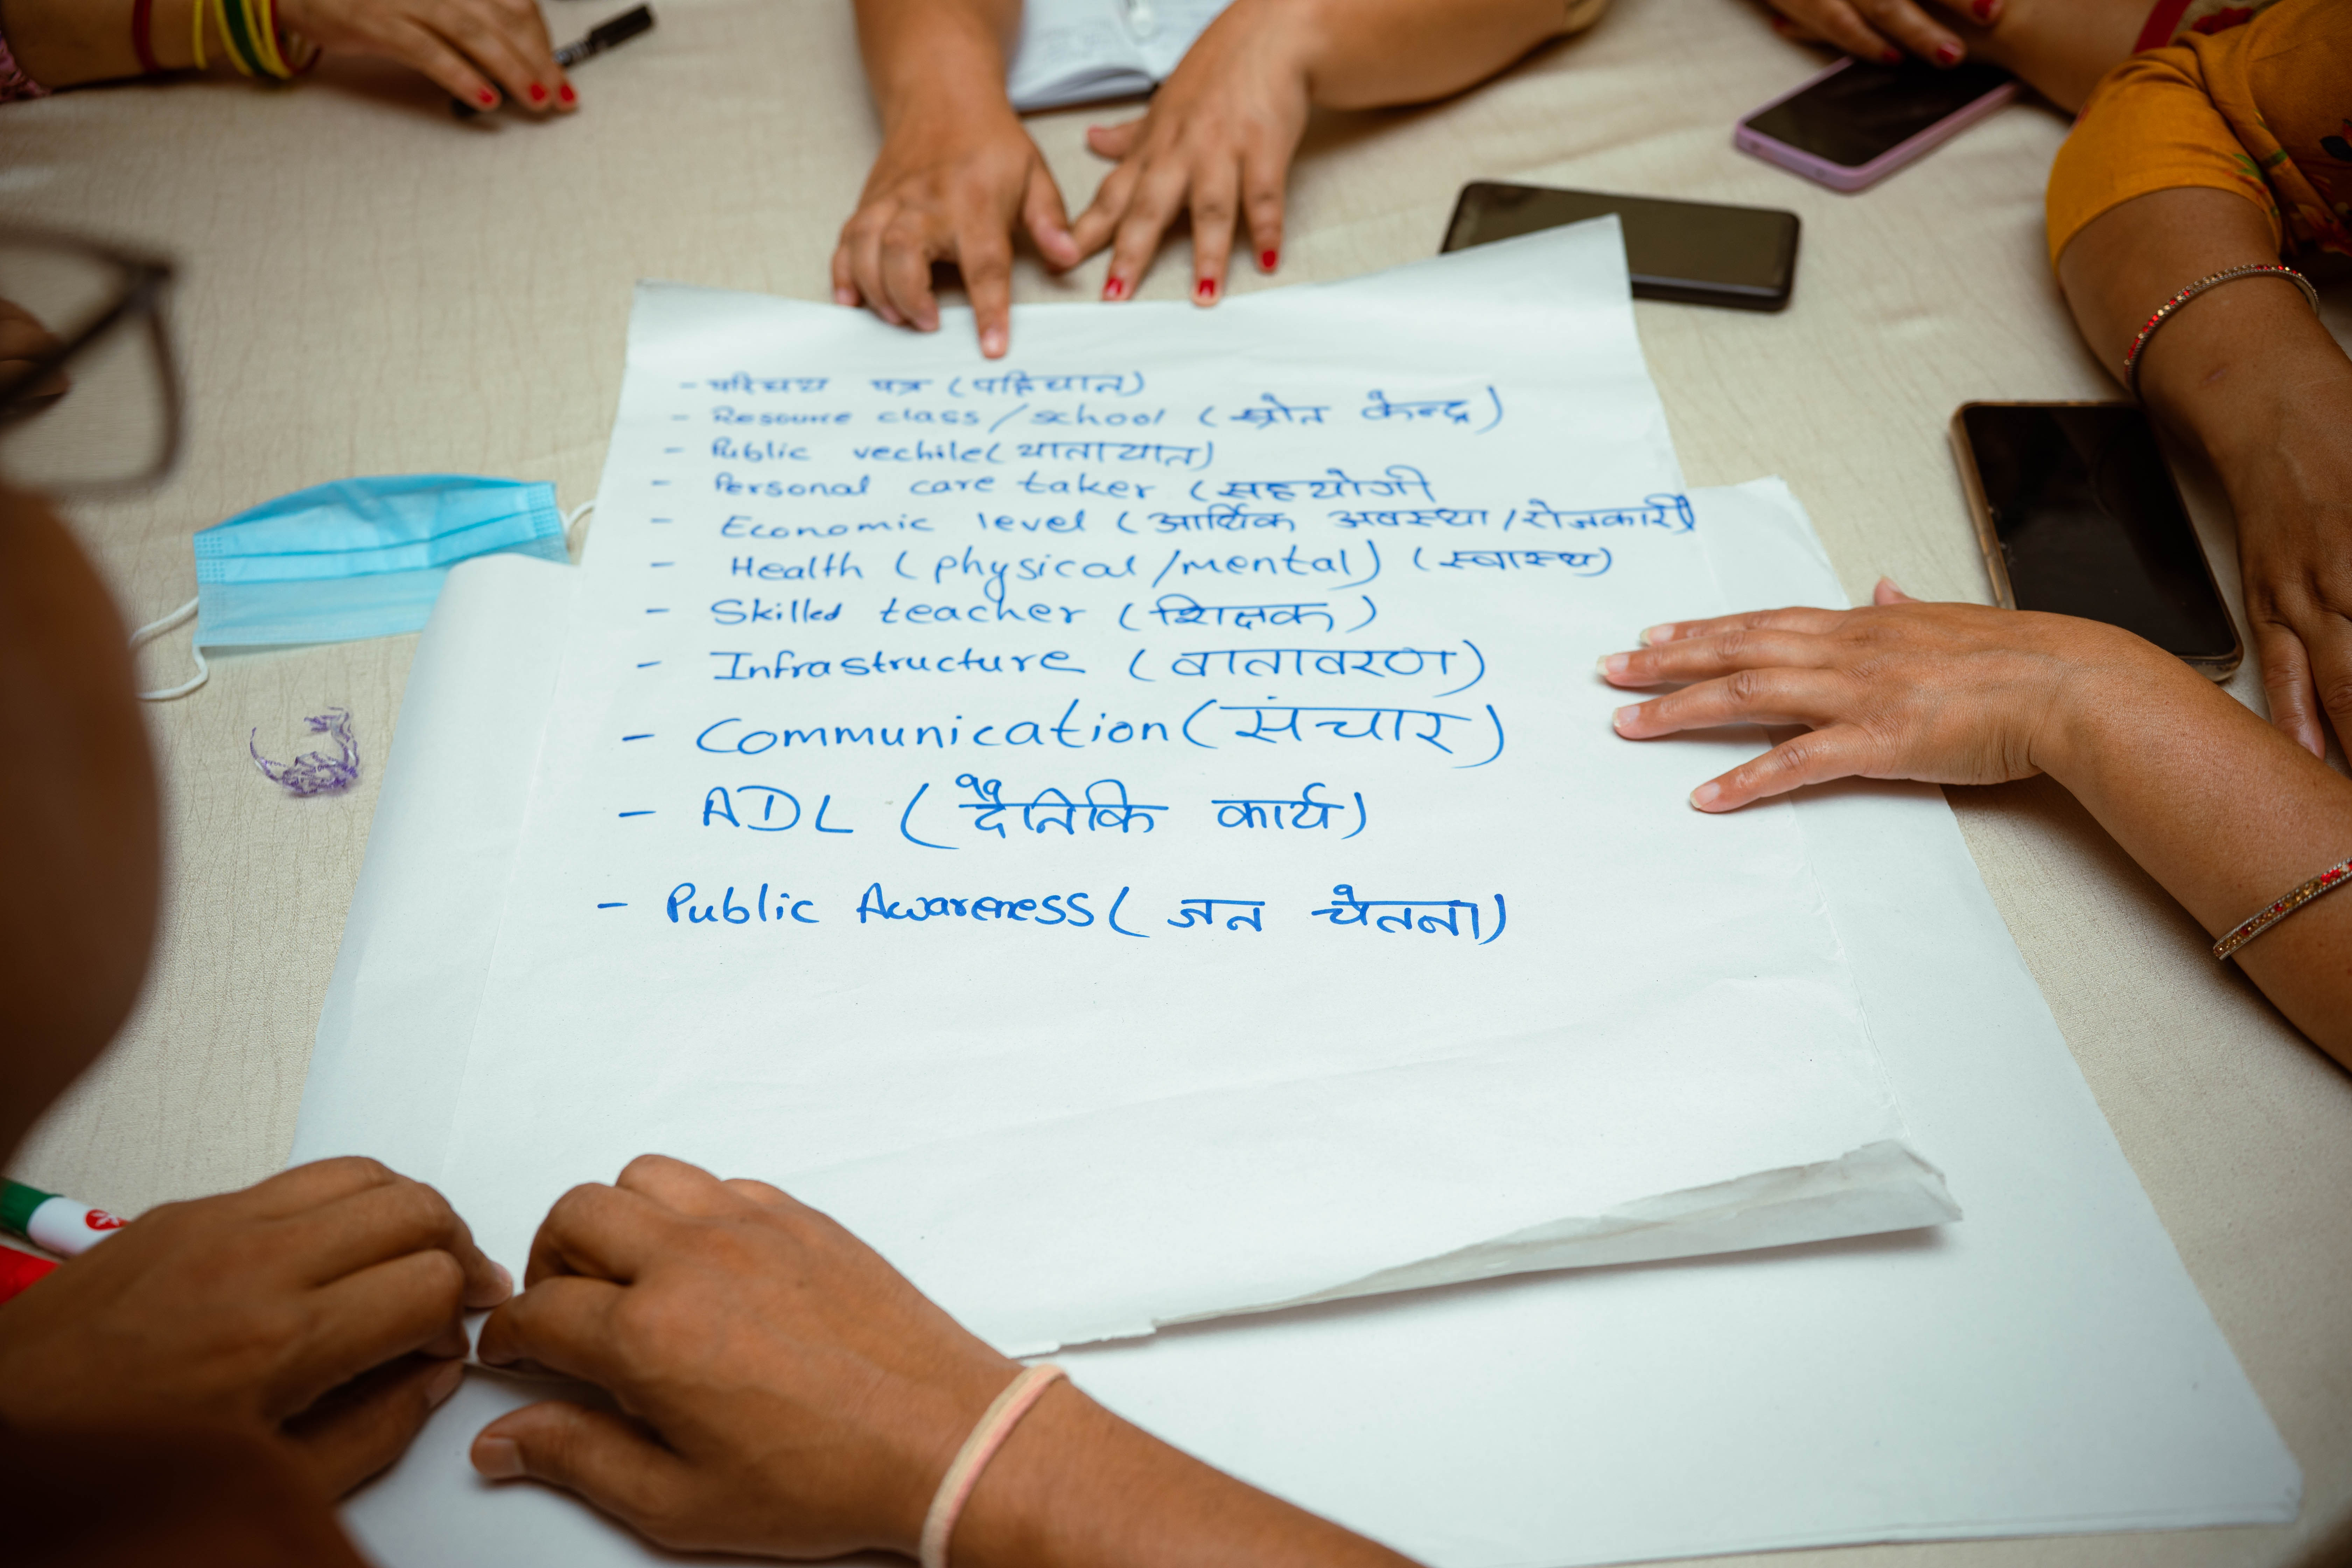 - परिचय पत्र (पहिचान)
- Resource class/school (स्रोत केन्द्र)
- Public vechile (यातायात)
- Personal care taker (सहयोगी
- Economic level (आर्थिक अवस्था/रोजकारी)
- Health (physical/mental) (स्वास्थ)
- Skilled teacher (शिक्षक)
- Infrastructure (वातावरण)
- Communication (संचार)
- ADL (दैनिकि कार्य)
- Public Awareness (जन चेतना)